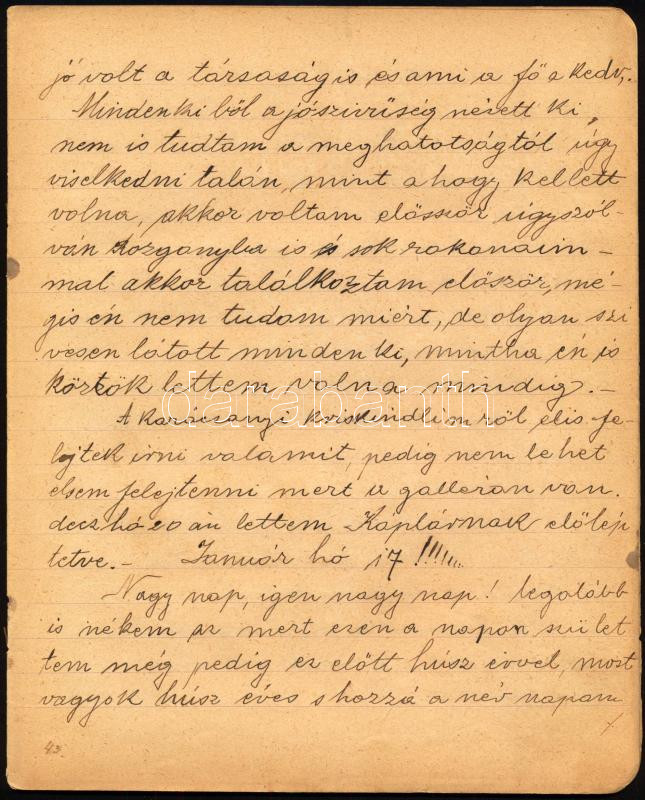 jó volt a társaság is és ami a fő a kedv,.
Mindenkiből a jószivüség nézett ki,
nem is tudtam a meghatotságtól úgy
viselkedni talán, mint ahogy kellett
volna, akkor voltam elössiör úgyszól-
ván Lozganyba is és sok rokonaim-
mal akkor találkoztam először, mé-
gis én nem tudom miért, de olyan szi
vesen látott mindenki, mintha én is
köztök lettem volna mindig. -
A karácsonyi kriskindlimről el is fe-
lejtek irni valamit, pedig nem lehet
elsem felejtenni mert a galléron van.
decz hó 20 án lettem Káplárnak előlép
tetve. - Január hó 17 !!!!!!
Nagy nap, igen nagy nap! legalább
is nékem az mert ezen a napon szület
tem még pedig ez előtt húsz évvel, most
vagyok húsz éves s hozzá a név napom
43.
darabanth